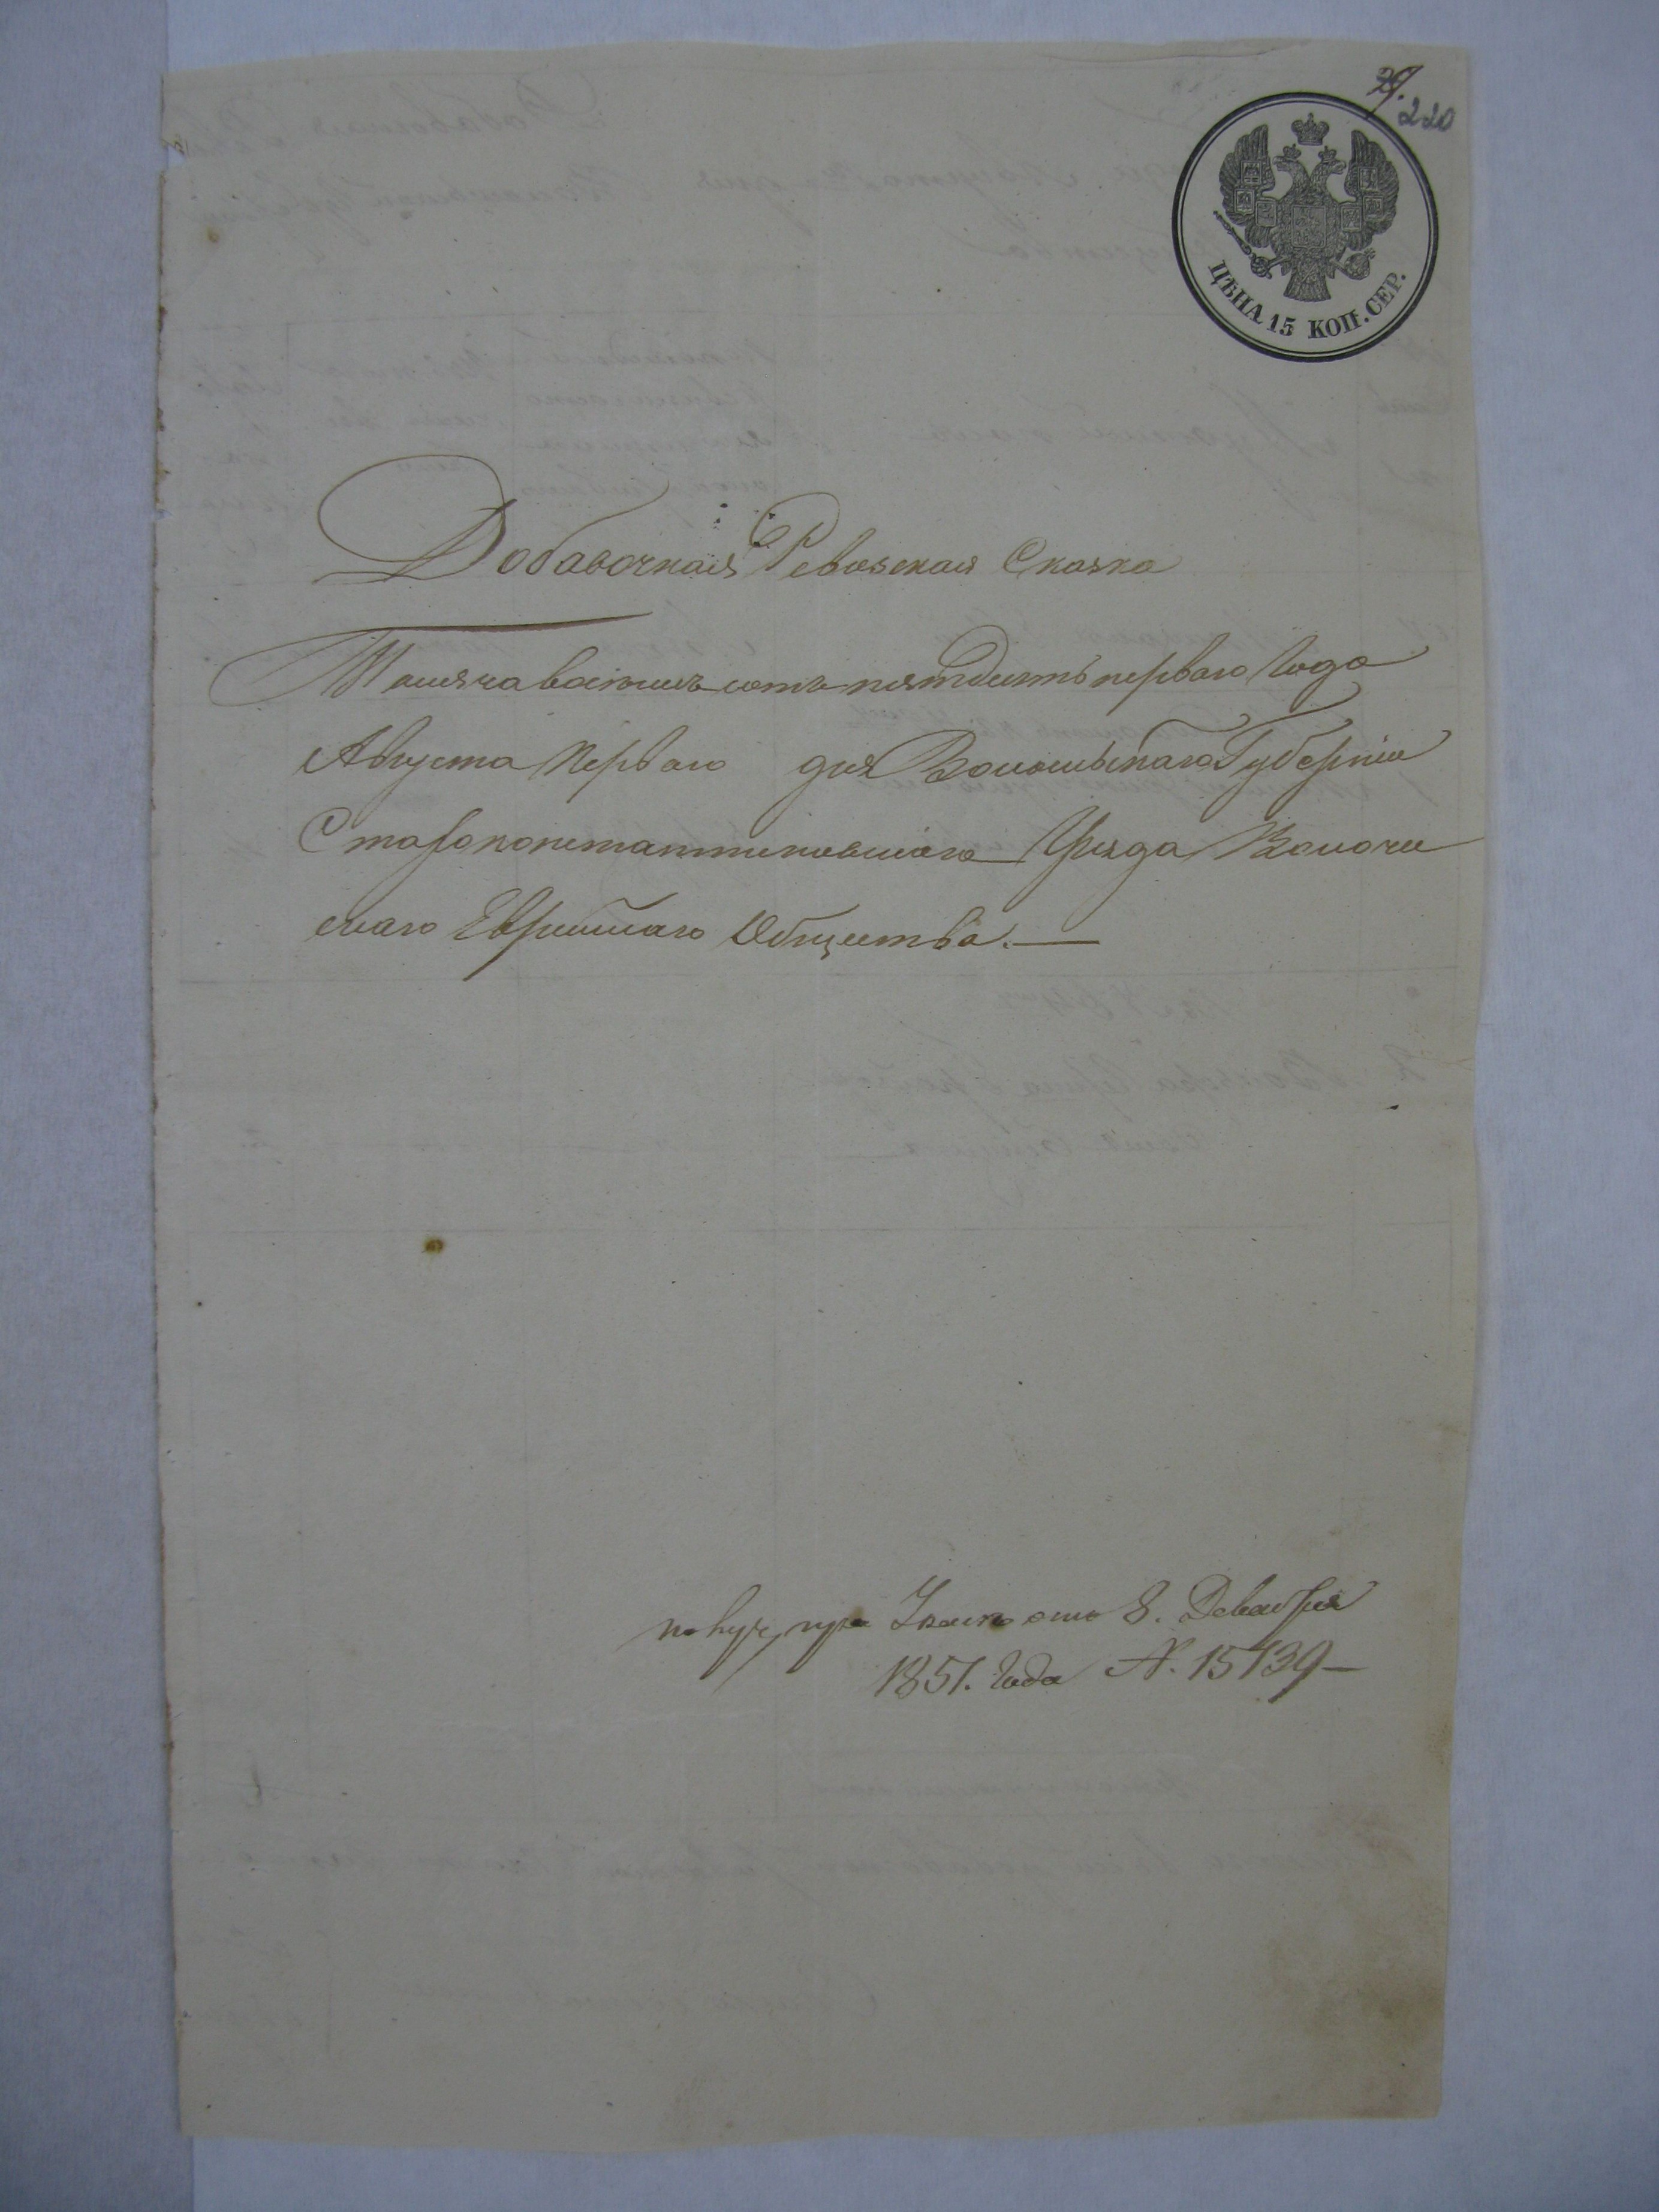 220
ЦѢНА 15 КОП. СЕР.
Добавочная Ревизская Сказка
Тысяча восемь сотъ пятдесятъ перваго Года
Августа перваго дня Волынской Губерніи
Староконстантиновскаго Уѣзда Волочи
скаго Еврейскаго Общества. —
при Указѣ отъ 8. Декабря
1851. Года №. 15439 —